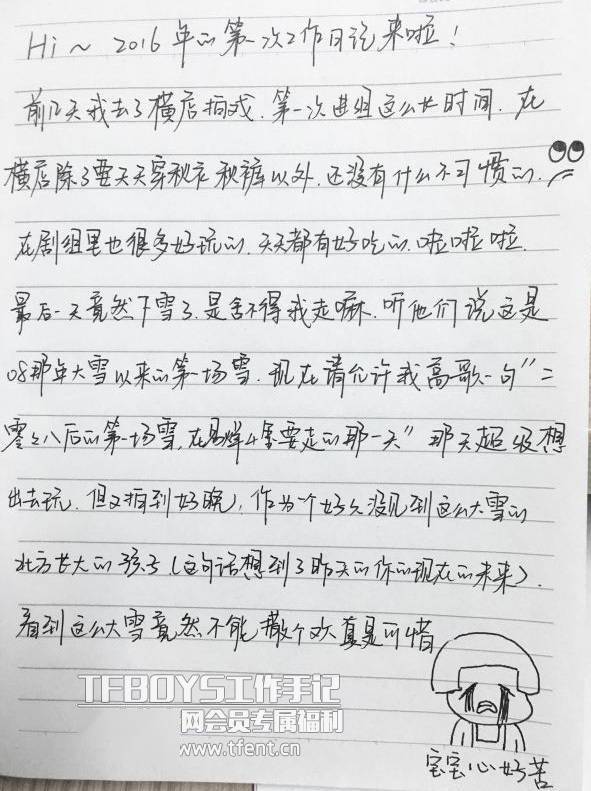 Hi~ 2016年的第一次工作日记来啦!
前几天我去了横店拍戏.第一次进组这么长时间.在
横店除了要天天穿秋衣秋裤以外.还没有什么不习惯的.
在剧组里也很多好玩的.天天都有好吃的.啦啦啦.
最后一天竟然下雪了.是舍不得我走嘛.听他们说这是
08那年大雪以来的第一场雪.现在请允许我高歌一句"二
零零八后的第一场雪,在易烊千玺要走的那一天"那天超级想
出去玩.但又拍到好晚,作为一个好久没见到这么大雪的
北方长大的孩子(这句话想到了昨天的你的现在的未来).
看到这么大雪竟然不能撒个欢真是可惜
宝宝心好苦
TFBOYS工作手记
网会员专属福利
www.tfent.cn